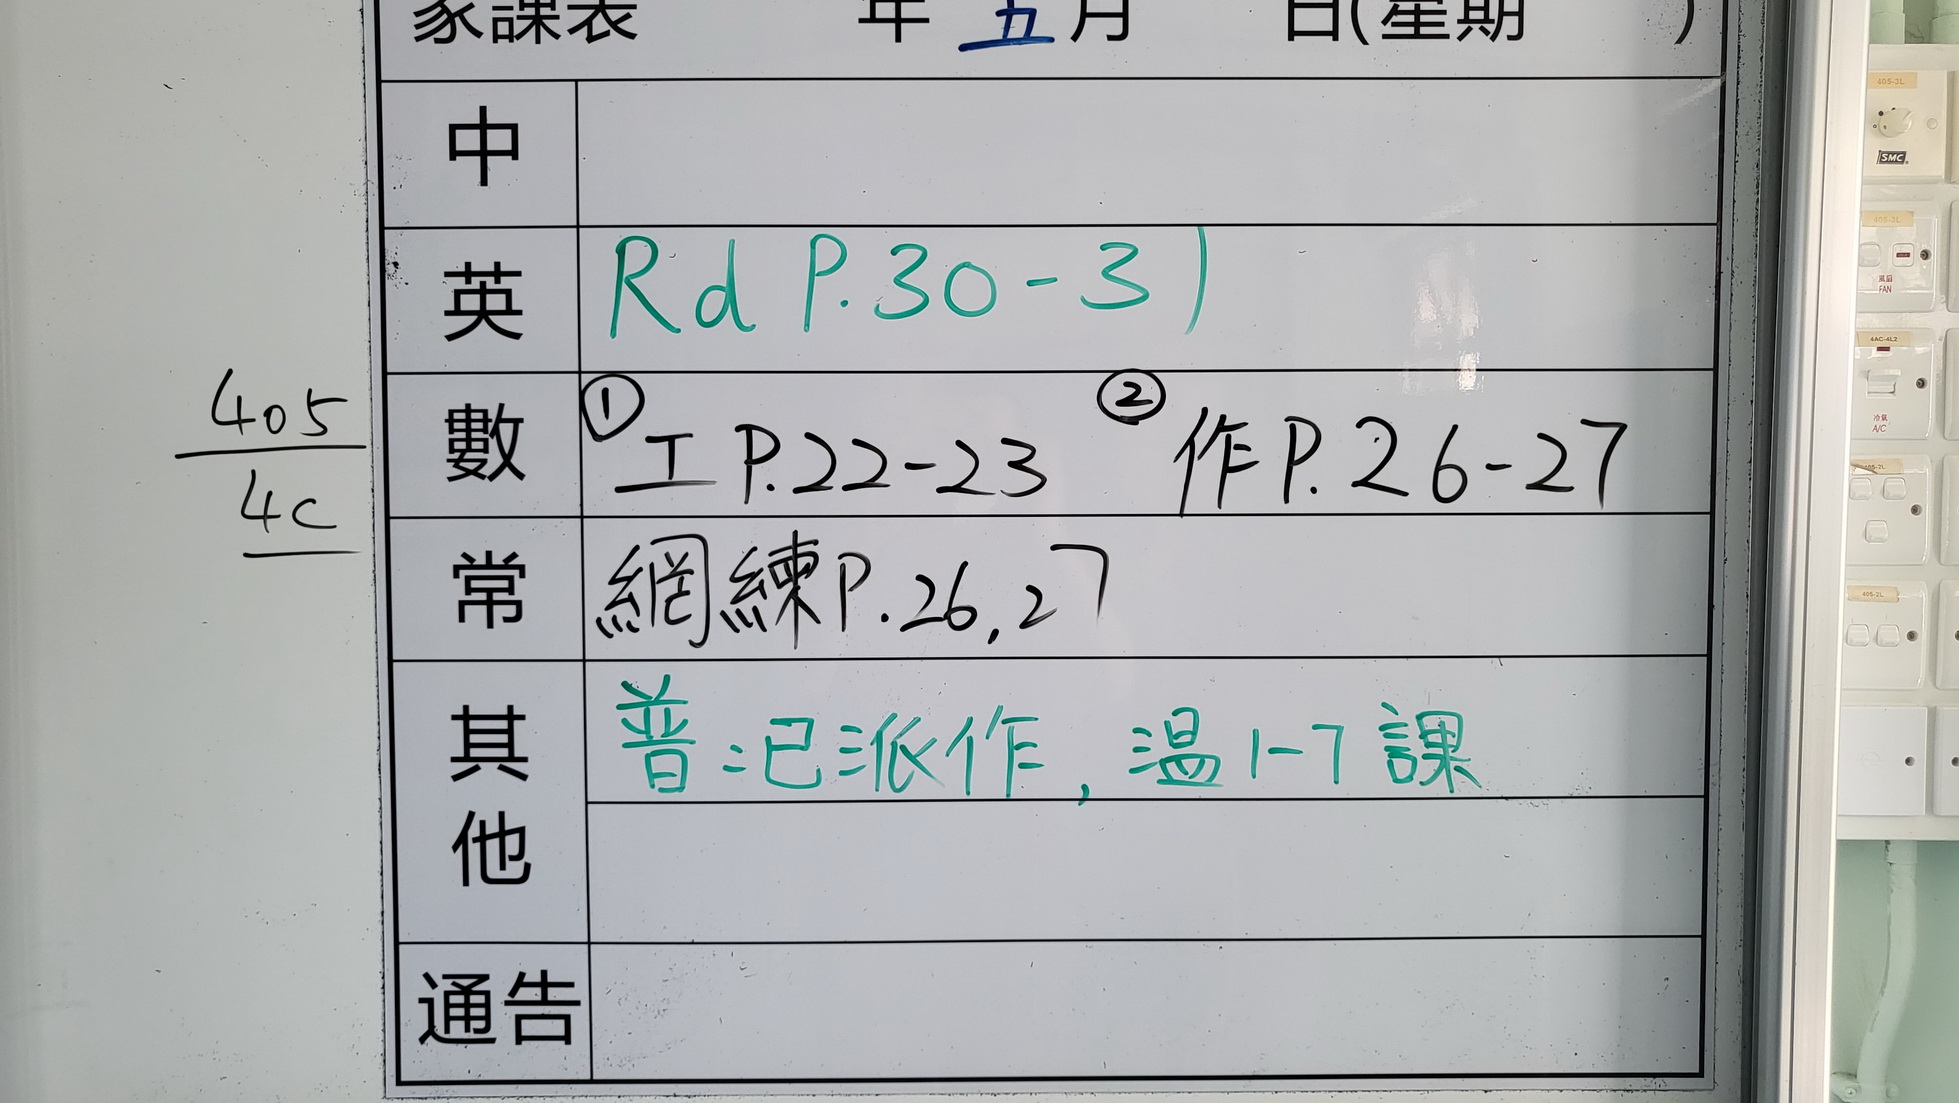 家課表 年 五 月 日(星期 )
中
英 Rd P.30-31
數 ① 工 P.22-23 ② 作 P.26-27
405
4C
常 網練 P.26,27
其他 普:已派作,溫1-7課
通告
405-3L
SMC
405-3L
風扇
FAN
4AC-4L2
冷氣
A/C
405-2L
405-2L